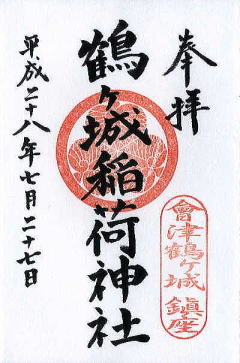 奉拝
會津鶴ヶ城鎮座
鶴ヶ城稲荷神社
平成二十八年七月二十七日